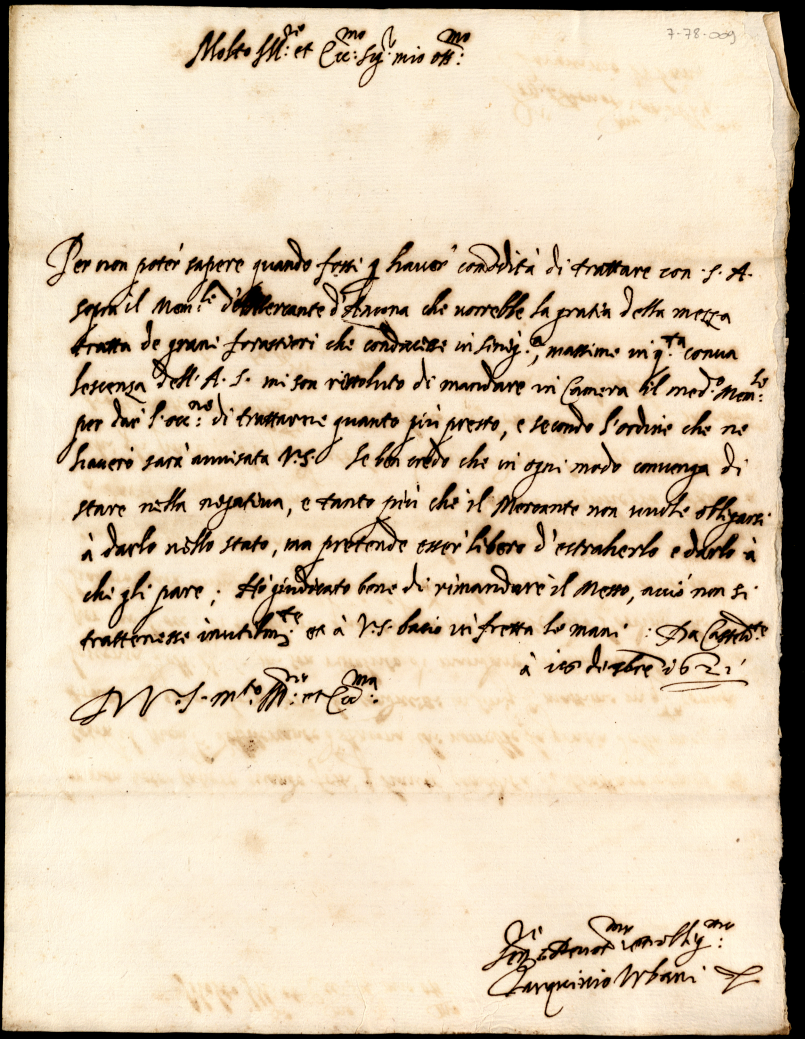 7-78-009
Molto Ill.re et Ecc.mo Sig.r mio oss.mo
Per non poter sapere quando fossi p haver comodità di trattare con S. A.
sopra il Mem.le del Mercante d'Ancona che vorrebbe la gratia della mezza
tratta de grani forastieri che conducesse in Sinig.a, massime in q.ta conva
lescenza dell'A. S. mi son rissoluto di mandare in Camera il med.o Mem.le
per dar l'occ.ne di trattarne quanto più presto, e secondo l'ordine che ne
haverò sarà avvisata V.S. Se ben credo che in ogni modo convenga di
stare nella negativa, e tanto più che il Mercante non vuole obligarsi
à darlo nello stato, ma pretende esser libero d'estraherlo e darlo à
chi gli pare; Hò giudicato bene di rimandare il Messo, acciò non si
trattenesse inutilm.te et à V.S. bacio in fretta le mani. Da Casteld.te
à 16 decbre 1621
D V. S. m.to Ill.re et Ecc.ma
Ser.re Devot.mo et obblig.mo
Tarquinio Urbani